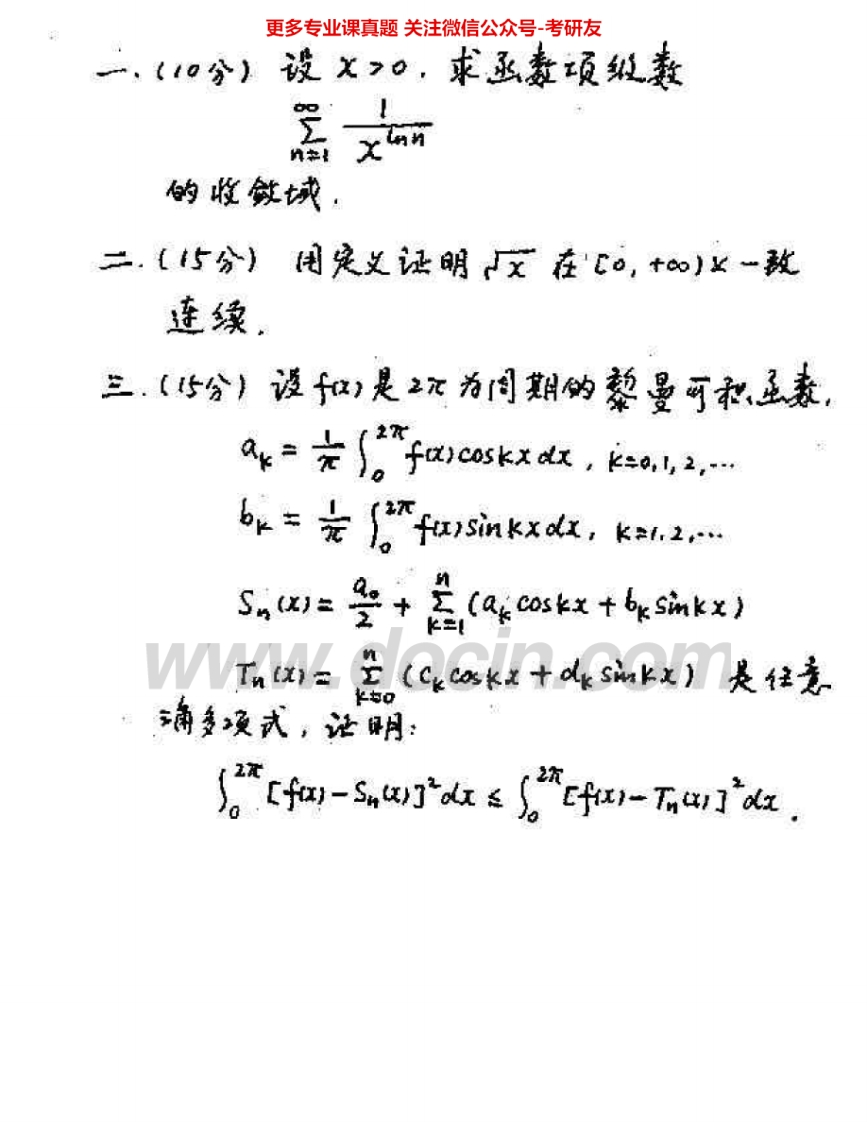 更多专业课真题 关注微信公众号-考研友
一.(10分) 设 x>0. 求函数项级数
∑_{n=1}^{∞} 1/x^{ln n}
的收敛域.
二.(15分) 用定义证明 √x 在 [0,+∞) 上一致
连续.
三.(15分) 设 f(x) 是 2π 为周期的黎曼可积函数,
a_k = 1/π ∫_0^{2π} f(x) cos kx dx, k=0,1,2,…
b_k = 1/π ∫_0^{2π} f(x) sin kx dx, k=1,2,…
S_n(x) = a_0/2 + ∑_{k=1}^{n} (a_k cos kx + b_k sin kx)
www.docin.com
T_n(x) = ∑_{k=0}^{n} (c_k cos kx + d_k sin kx) 是任意
三角多项式, 证明:
∫_0^{2π} [f(x) - S_n(x)]^2 dx ≤ ∫_0^{2π} [f(x) - T_n(x)]^2 dx.